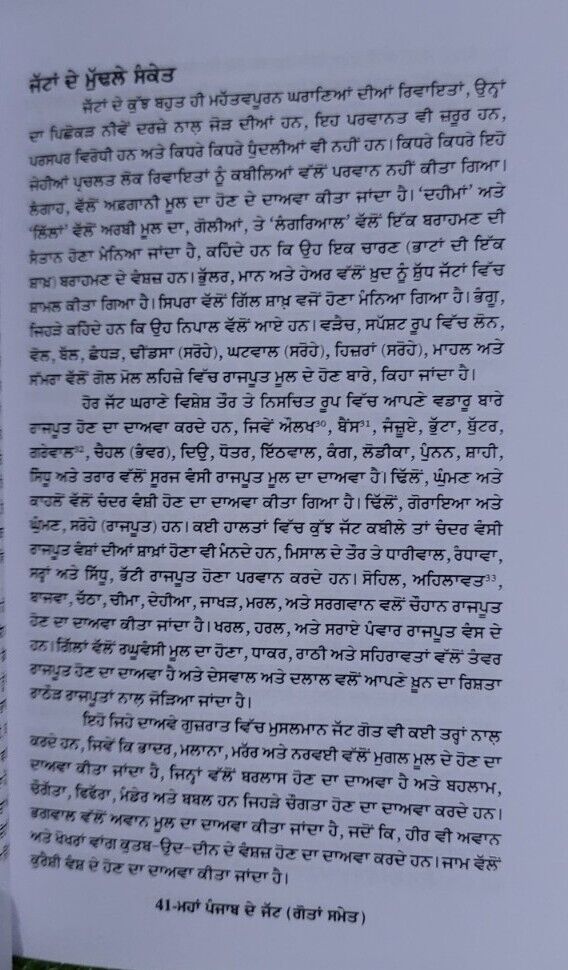 ਜੱਟਾਂ ਦੇ ਮੁੱਢਲੇ ਸੰਕੇਤ
ਜੱਟਾਂ ਦੇ ਕੁੱਝ ਬਹੁਤ ਹੀ ਮਹੱਤਵਪੂਰਨ ਘਰਾਣਿਆਂ ਦੀਆਂ ਰਿਵਾਇਤਾਂ, ਉਨ੍ਹਾਂ
ਦਾ ਪਿਛੋਕੜ ਨੀਵੇਂ ਦਰਜ਼ੇ ਨਾਲ਼ ਜੋੜ ਦੀਆਂ ਹਨ, ਇਹ ਪਰਵਾਨਤ ਵੀ ਜ਼ਰੂਰ ਹਨ,
ਪਰਸਪਰ ਵਿਰੋਧੀ ਹਨ ਅਤੇ ਕਿਧਰੇ ਕਿਧਰੇ ਧੁੰਦਲੀਆਂ ਵੀ ਨਹੀਂ ਹਨ। ਕਿਧਰੇ ਕਿਧਰੇ ਇਹੋ
ਜੇਹੀਆਂ ਪ੍ਰਚਲਤ ਲੋਕ ਰਿਵਾਇਤਾਂ ਨੂੰ ਕਬੀਲਿਆਂ ਵੱਲੋਂ ਪਰਵਾਨ ਨਹੀਂ ਕੀਤਾ ਗਿਆ।
ਲੰਗਾਹ, ਵੱਲੋਂ ਅਫ਼ਗਾਨੀ ਮੂਲ ਦਾ ਹੋਣ ਦੇ ਦਾਅਵਾ ਕੀਤਾ ਜਾਂਦਾ ਹੈ। 'ਦਹੀਮਾਂ' ਅਤੇ
'ਲਿੱਲਾਂ' ਵੱਲੋਂ ਅਰਬੀ ਮੂਲ ਦਾ, ਗੋਲੀਆਂ, ਤੇ 'ਲੰਗਰਿਆਲ' ਵੱਲੋਂ ਇੱਕ ਬਰਾਹਮਣ ਦੀ
ਸੰਤਾਨ ਹੋਣਾ ਮੰਨਿਆ ਜਾਂਦਾ ਹੈ, ਕਹਿੰਦੇ ਹਨ ਕਿ ਉਹ ਇਕ ਚਾਰਣ (ਭਾਟਾਂ ਦੀ ਇੱਕ
ਸ਼ਾਖ਼) ਬਰਾਹਮਣ ਦੇ ਵੰਸ਼ਜ਼ ਹਨ। ਭੁੱਲਰ, ਮਾਨ ਅਤੇ ਹੇਅਰ ਵੱਲੋਂ ਖ਼ੁਦ ਨੂੰ ਸ਼ੁੱਧ ਜੱਟਾਂ ਵਿੱਚ
ਸ਼ਾਮਲ ਕੀਤਾ ਗਿਆ ਹੈ। ਸਿਪਰਾ ਵੱਲੋਂ ਗਿੱਲ ਸ਼ਾਖ਼ ਵਜੋਂ ਹੋਣਾ ਮੰਨਿਆ ਗਿਆ ਹੈ। ਭੰਗੂ,
ਜਿਹੜੇ ਕਹਿੰਦੇ ਹਨ ਕਿ ਉਹ ਨਿਪਾਲ ਵੱਲੋਂ ਆਏ ਹਨ। ਵੜੈਚ, ਸਪੱਸ਼ਟ ਰੂਪ ਵਿੱਚ ਲੋਨ,
ਵੱਲ, ਬੱਲ, ਛੰਧੜ, ਢੀਂਡਸਾ (ਸਰੋਹੇ), ਘਟਵਾਲ (ਸਰੋਹੇ), ਹਿਜ਼ਰਾਂ (ਸਰੋਹੇ), ਮਾਹਲ ਅਤੇ
ਸੱਮਰਾ ਵੱਲੋਂ ਗੋਲ ਮੋਲ ਲਹਿਜ਼ੇ ਵਿੱਚ ਰਾਜਪੂਤ ਮੂਲ ਦੇ ਹੋਣ ਬਾਰੇ, ਕਿਹਾ ਜਾਂਦਾ ਹੈ।
ਹੋਰ ਜੱਟ ਘਰਾਣੇ ਵਿਸ਼ੇਸ਼ ਤੌਰ ਤੇ ਨਿਸਚਿਤ ਰੂਪ ਵਿੱਚ ਆਪਣੇ ਵਡਾਰੂ ਬਾਰੇ
ਰਾਜਪੂਤ ਹੋਣ ਦਾ ਦਾਅਵਾ ਕਰਦੇ ਹਨ, ਜਿਵੇਂ ਔਲਖ³⁰, ਬੈਂਸ³¹, ਜੰਜੂਏ, ਭੁੱਟਾ, ਬੁੱਟਰ,
ਗਰੇਵਾਲ³², ਚੈਹਲ (ਭੰਵਰ), ਦਿਉ, ਧੋਤਰ, ਇੱਠਵਾਲ, ਕੰਗ, ਲੋਡੀਕਾ, ਪੁੰਨਨ, ਸ਼ਾਹੀ,
ਸਿੱਧੂ ਅਤੇ ਤਰਾਰ ਵੱਲੋਂ ਸੂਰਜ ਵੰਸੀ ਰਾਜਪੂਤ ਮੂਲ ਦਾ ਦਾਅਵਾ ਹੈ। ਢਿੱਲੋਂ, ਘੁੰਮਣ ਅਤੇ
ਕਾਹਲੋਂ ਵੱਲੋਂ ਚੰਦਰ ਵੰਸ਼ੀ ਹੋਣ ਦਾ ਦਾਅਵਾ ਕੀਤਾ ਗਿਆ ਹੈ। ਢਿੱਲੋਂ, ਗੋਰਾਇਆ ਅਤੇ
ਘੁੰਮਣ, ਸਰੋਹੇ (ਰਾਜਪੂਤ) ਹਨ। ਕਈ ਹਾਲਤਾਂ ਵਿੱਚ ਕੁੱਝ ਜੱਟ ਕਬੀਲੇ ਤਾਂ ਚੰਦਰ ਵੰਸੀ
ਰਾਜਪੂਤ ਵੰਸ਼ਾਂ ਦੀਆਂ ਸ਼ਾਖਾਂ ਹੋਣਾ ਵੀ ਮੰਨਦੇ ਹਨ, ਮਿਸਾਲ ਦੇ ਤੌਰ ਤੇ ਧਾਰੀਵਾਲ, ਰੰਧਾਵਾ,
ਸਰ੍ਹਾਂ ਅਤੇ ਸਿੱਧੂ, ਭੱਟੀ ਰਾਜਪੂਤ ਹੋਣਾ ਪਰਵਾਨ ਕਰਦੇ ਹਨ। ਸੋਹਿਲ, ਅਹਿਲਾਵਤ³³,
ਬਾਜਵਾ, ਚੱਠਾ, ਚੀਮਾ, ਦੇਹੀਆ, ਜਾਖੜ, ਮਰਲ, ਅਤੇ ਸਰਗਵਾਨ ਵਲੋਂ ਚੌਹਾਨ ਰਾਜਪੂਤ
ਹੋਣ ਦਾ ਦਾਅਵਾ ਕੀਤਾ ਜਾਂਦਾ ਹੈ। ਖਰਲ, ਹਰਲ, ਅਤੇ ਸਰਾਏ ਪੰਵਾਰ ਰਾਜਪੂਤ ਵੰਸ ਦੇ
ਹਨ। ਗਿੱਲਾਂ ਵੱਲੋਂ ਰਘੂਵੰਸੀ ਮੂਲ ਦਾ ਹੋਣਾ, ਧਾਕਰ, ਰਾਠੀ ਅਤੇ ਸਹਿਰਾਵਤਾਂ ਵੱਲੋਂ ਤੰਵਰ
ਰਾਜਪੂਤ ਹੋਣ ਦਾ ਦਾਅਵਾ ਹੈ ਅਤੇ ਦੇਸਵਾਲ ਅਤੇ ਦਲਾਲ ਵਲੋਂ ਆਪਣੇ ਖ਼ੂਨ ਦਾ ਰਿਸ਼ਤਾ
ਰਾਠੌੜ ਰਾਜਪੂਤਾਂ ਨਾਲ਼ ਜੋੜਿਆ ਜਾਂਦਾ ਹੈ।
ਇਹੋ ਜਿਹੇ ਦਾਅਵੇ ਗੁਜ਼ਰਾਤ ਵਿੱਚ ਮੁਸਲਮਾਨ ਜੱਟ ਗੋਤ ਵੀ ਕਈ ਤਰ੍ਹਾਂ ਨਾਲ਼
ਕਰਦੇ ਹਨ, ਜਿਵੇਂ ਕਿ ਭਾਦਰ, ਮਲਾਨਾ, ਮਰੱਰ ਅਤੇ ਨਰਵਈ ਵੱਲੋਂ ਮੁਗਲ ਮੂਲ ਦੇ ਹੋਣ ਦਾ
ਦਾਅਵਾ ਕੀਤਾ ਜਾਂਦਾ ਹੈ, ਜਿਨ੍ਹਾਂ ਵੱਲੋਂ ਬਰਲਾਸ ਹੋਣ ਦਾ ਦਾਅਵਾ ਹੈ ਅਤੇ ਬਹਲਾਮ,
ਚੌਗੱਤਾ, ਫਿਫੱਰਾ, ਮੰਡੇਰ ਅਤੇ ਬਬਲ ਹਨ ਜਿਹੜੇ ਚੌਗਤਾ ਹੋਣ ਦਾ ਦਾਅਵਾ ਕਰਦੇ ਹਨ।
ਭਗਵਾਲ ਵੱਲੋਂ ਅਵਾਨ ਮੂਲ ਦਾ ਦਾਅਵਾ ਕੀਤਾ ਜਾਂਦਾ ਹੈ, ਜਦੋਂ ਕਿ, ਹੀਰ ਵੀ ਅਵਾਨ
ਅਤੇ ਖੋਖਰਾਂ ਵਾਂਗ ਕੁਤਬ-ਉਦ-ਦੀਨ ਦੇ ਵੰਸ਼ਜ਼ ਹੋਣ ਦਾ ਦਾਅਵਾ ਕਰਦੇ ਹਨ। ਜਾਮ ਵੱਲੋਂ
ਕੁਰੈਸ਼ੀ ਵੰਸ਼ ਦੇ ਹੋਣ ਦਾ ਦਾਅਵਾ ਕੀਤਾ ਜਾਂਦਾ ਹੈ।
41-ਮਹਾਂ ਪੰਜਾਬ ਦੇ ਜੱਟ (ਗੋਤਾਂ ਸਮੇਤ)